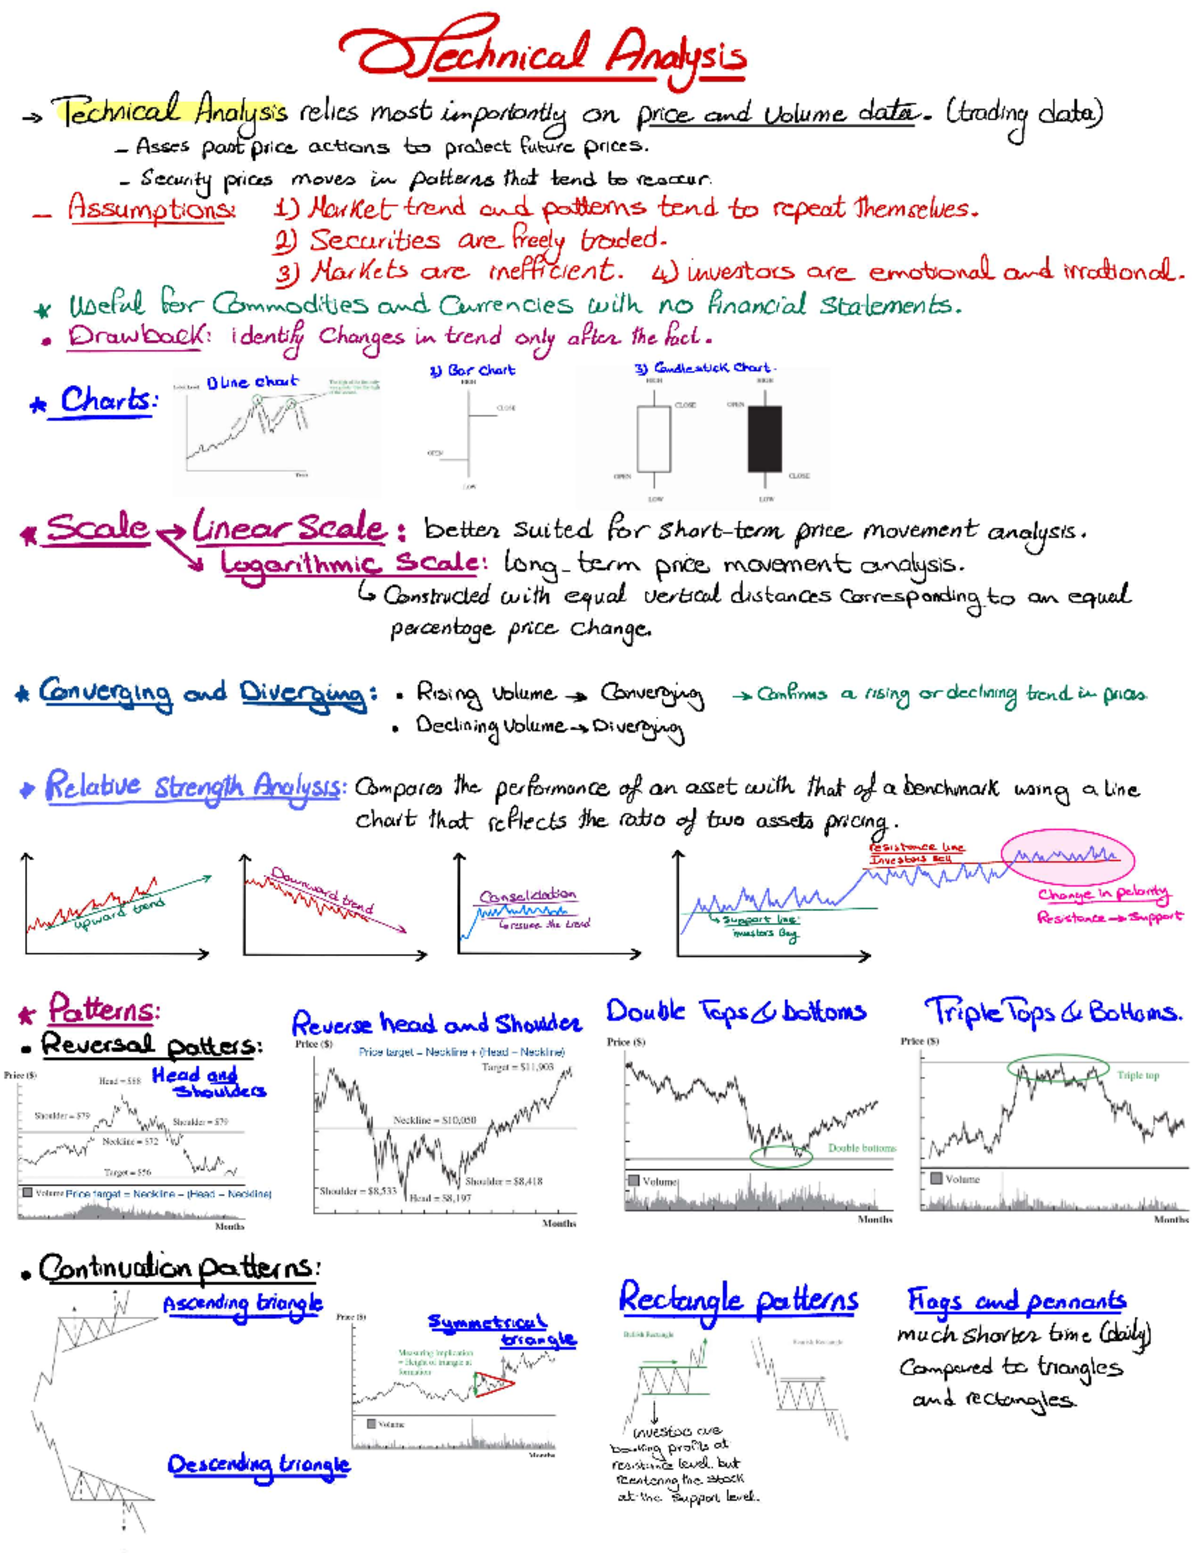 Technical Analysis
→ Technical Analysis relies most importantly on price and volume data. (trading data)
- Asses past price actions to project future prices.
- Security prices moves in patterns that tend to reoccur.
- Assumptions: 1) Market trend and patterns tend to repeat themselves.
2) Securities are freely traded.
3) Markets are inefficient. 4) investors are emotional and irrational.
* Useful for Commodities and Currencies with no financial statements.
• Drawback: identify changes in trend only after the fact.
* Charts:
1) Line chart
Time
2) Bar chart
HIGH
CLOSE
OPEN
LOW
3) Candlestick chart.
HIGH HIGH
CLOSE OPEN
OPEN CLOSE
LOW LOW
* Scale → Linear Scale: better suited for short-term price movement analysis.
Logarithmic Scale: long-term price movement analysis.
↳ Constructed with equal vertical distances corresponding to an equal
percentage price change.
* Converging and Diverging: • Rising Volume → Converging → Confirms a rising or declining trend in prices
• Declining Volume → Diverging
Relative Strength Analysis: Compares the performance of an asset with that of a benchmark using a line
chart that reflects the ratio of two assets pricing.
upward trend
Downward trend
Consolidation
↳ resume the trend
resistance line
Investors sell
↳ Support line
investors Buy
Change in polarity
Resistance → Support
* Patterns:
• Reversal patters:
Head and
Shoulders
Price ($)
Head = $88
Shoulder = $79
Shoulder = $79
Neckline = $72
Target = $56
Volume Price target = Neckline - (Head - Neckline)
Months
Reverse head and Shoulder
Price ($)
Price target = Neckline + (Head - Neckline)
Target = $11,903
Neckline = $10,050
Shoulder = $8,533
Head = $8,197
Shoulder = $8,418
Months
Double Tops & bottoms
Price ($)
Double bottoms
Volume
Months
Triple Tops & Bottoms.
Price ($)
Triple top
Volume
Months
• Continuation patterns:
Ascending triangle
Descending triangle
Price ($)
Symmetrical
triangle
Measuring implication
= Height of triangle at
formation
Volume
Months
Rectangle patterns
Bullish Rectangle
Bearish Rectangle
investors are
booking profits at
resistance level, but
reentering the stock
at the support level.
Flags and pennants
much shorter time (daily)
Compared to triangles
and rectangles.